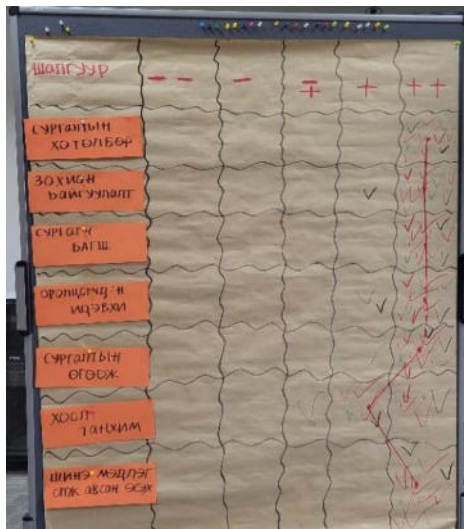 ШАЛГУУР -- - ∓ + ++
СУРГАЛТЫН
ХӨТӨЛБӨР
ЗОХИОН
БАЙГУУЛАЛТ
СУРГАГЧ
БАГШ
ОРОЛЦОГЧДЫН
ИДЭВХИ
СУРГАЛТЫН
ӨГӨӨЖ
ХООЛ
ТАНХИМ
ШИНЭ МЭДЛЭГ
ОЛЖ АВСАН ЭСЭХ